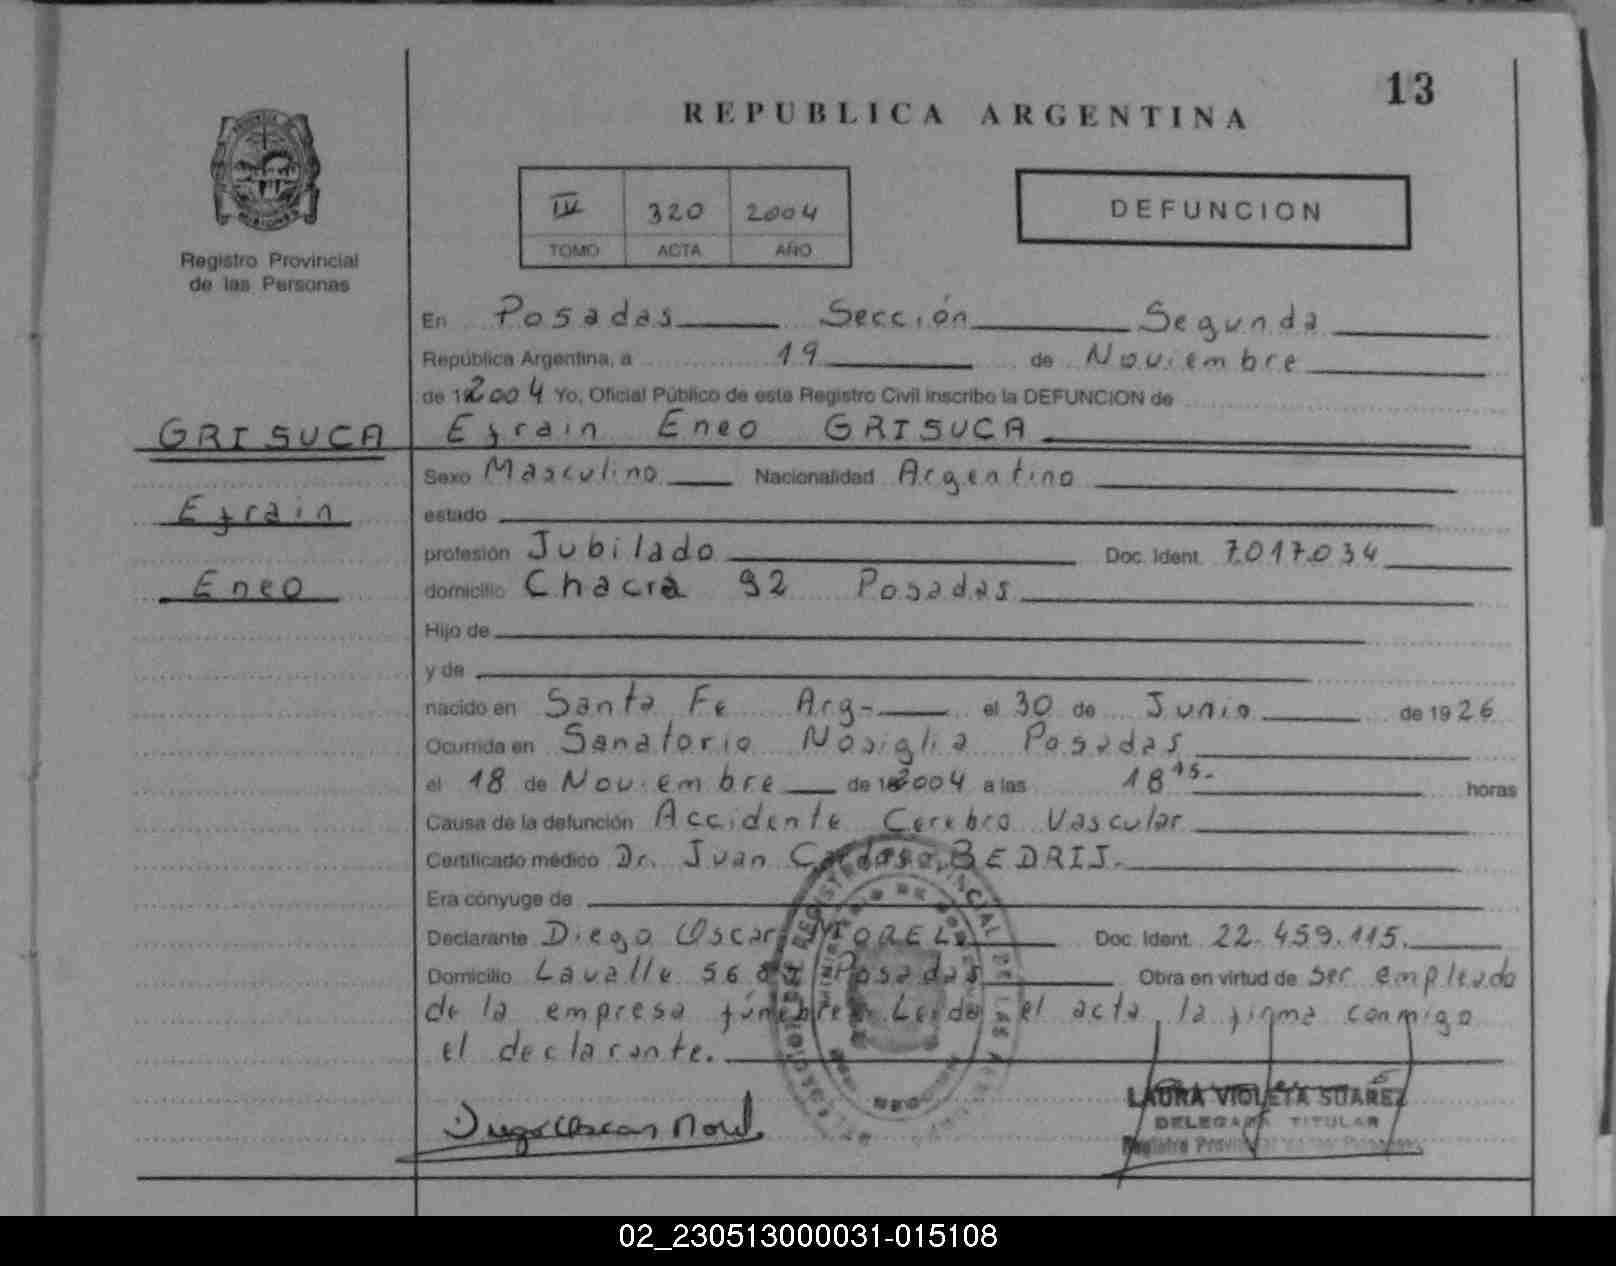 13
REPUBLICA ARGENTINA
Registro Provincial
de las Personas
IV 320 2004
TOMO ACTA AÑO
DEFUNCION
En Posadas Sección Segunda
República Argentina, a 19 de Noviembre
de 2004 Yo, Oficial Público de este Registro Civil inscribo la DEFUNCION de
GRISUCA
Efrain
Eneo
Efrain Eneo GRISUCA
Sexo Masculino Nacionalidad Argentino
estado
profesión Jubilado Doc. Ident. 7.017.034
domicilio Chacra 92 Posadas
Hijo de
y de
nacido en Santa Fe Arg- el 30 de Junio de 1926
Ocurrida en Sanatorio Nosiglia Posadas
el 18 de Noviembre de 2004 a las 18 15- horas
Causa de la defunción Accidente Cerebro Vascular
Certificado médico Dr. Juan Cardoso BEDRIJ.
Era cónyuge de
Declarante Diego Oscar MOREL Doc. Ident. 22.459.115.
Domicilio Lavalle Posadas Obra en virtud de ser empleado
de la empresa fúnebre. Leída el acta, la firma conmigo
el declarante.
Diego Oscar Morel
LAURA VIOLETA SUAREZ
DELEGADA TITULAR
Registro Provincial de las Personas
02_230513000031-015108